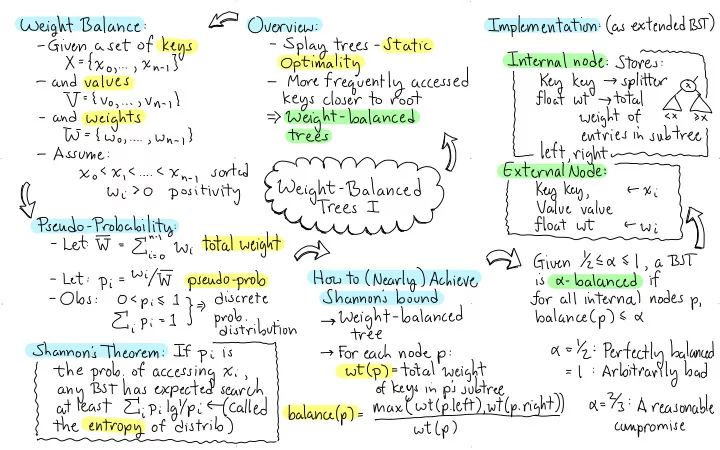 Weight Balance:
- Given a set of keys
X = {x₀, ..., xₙ₋₁}
- and values
V = {v₀, ..., vₙ₋₁}
- and weights
W = {w₀, ..., wₙ₋₁}
- Assume:
x₀ < x₁ < .... < xₙ₋₁ sorted
wᵢ > 0 positivity
Overview:
- Splay trees - Static
Optimality
- More frequently accessed
keys closer to root
⇒ Weight-balanced
trees
Weight-Balanced
Trees I
Pseudo-Probability:
- Let W̅ = Σᵢ₌₀ⁿ⁻¹ wᵢ total weight
- Let: pᵢ = wᵢ/W̅ pseudo-prob
- Obs: 0 < pᵢ ≤ 1 } ⇒ discrete
Σᵢ pᵢ = 1 prob.
distribution
Shannon's Theorem: If pᵢ is
the prob. of accessing xᵢ,
any BST has expected search
at least Σᵢ pᵢ lg 1/pᵢ ← (called
the entropy of distrib)
How to (Nearly) Achieve
Shannon's bound
→ Weight-balanced
tree
→ For each node p:
wt(p) = total weight
of keys in p's subtree
balance(p) = max(wt(p.left), wt(p.right))
wt(p)
Implementation: (as extended BST)
Internal node: Stores:
Key key → splitter
float wt → total
weight of
entries in subtree
left, right
x
<x ≥x
External Node:
Key key, ← xᵢ
Value value
float wt ← wᵢ
Given ½ ≤ α ≤ 1, a BST
is α-balanced if
for all internal nodes p,
balance(p) ≤ α
α = ½: Perfectly balanced
= 1: Arbitrarily bad
α = ⅔: A reasonable
compromise